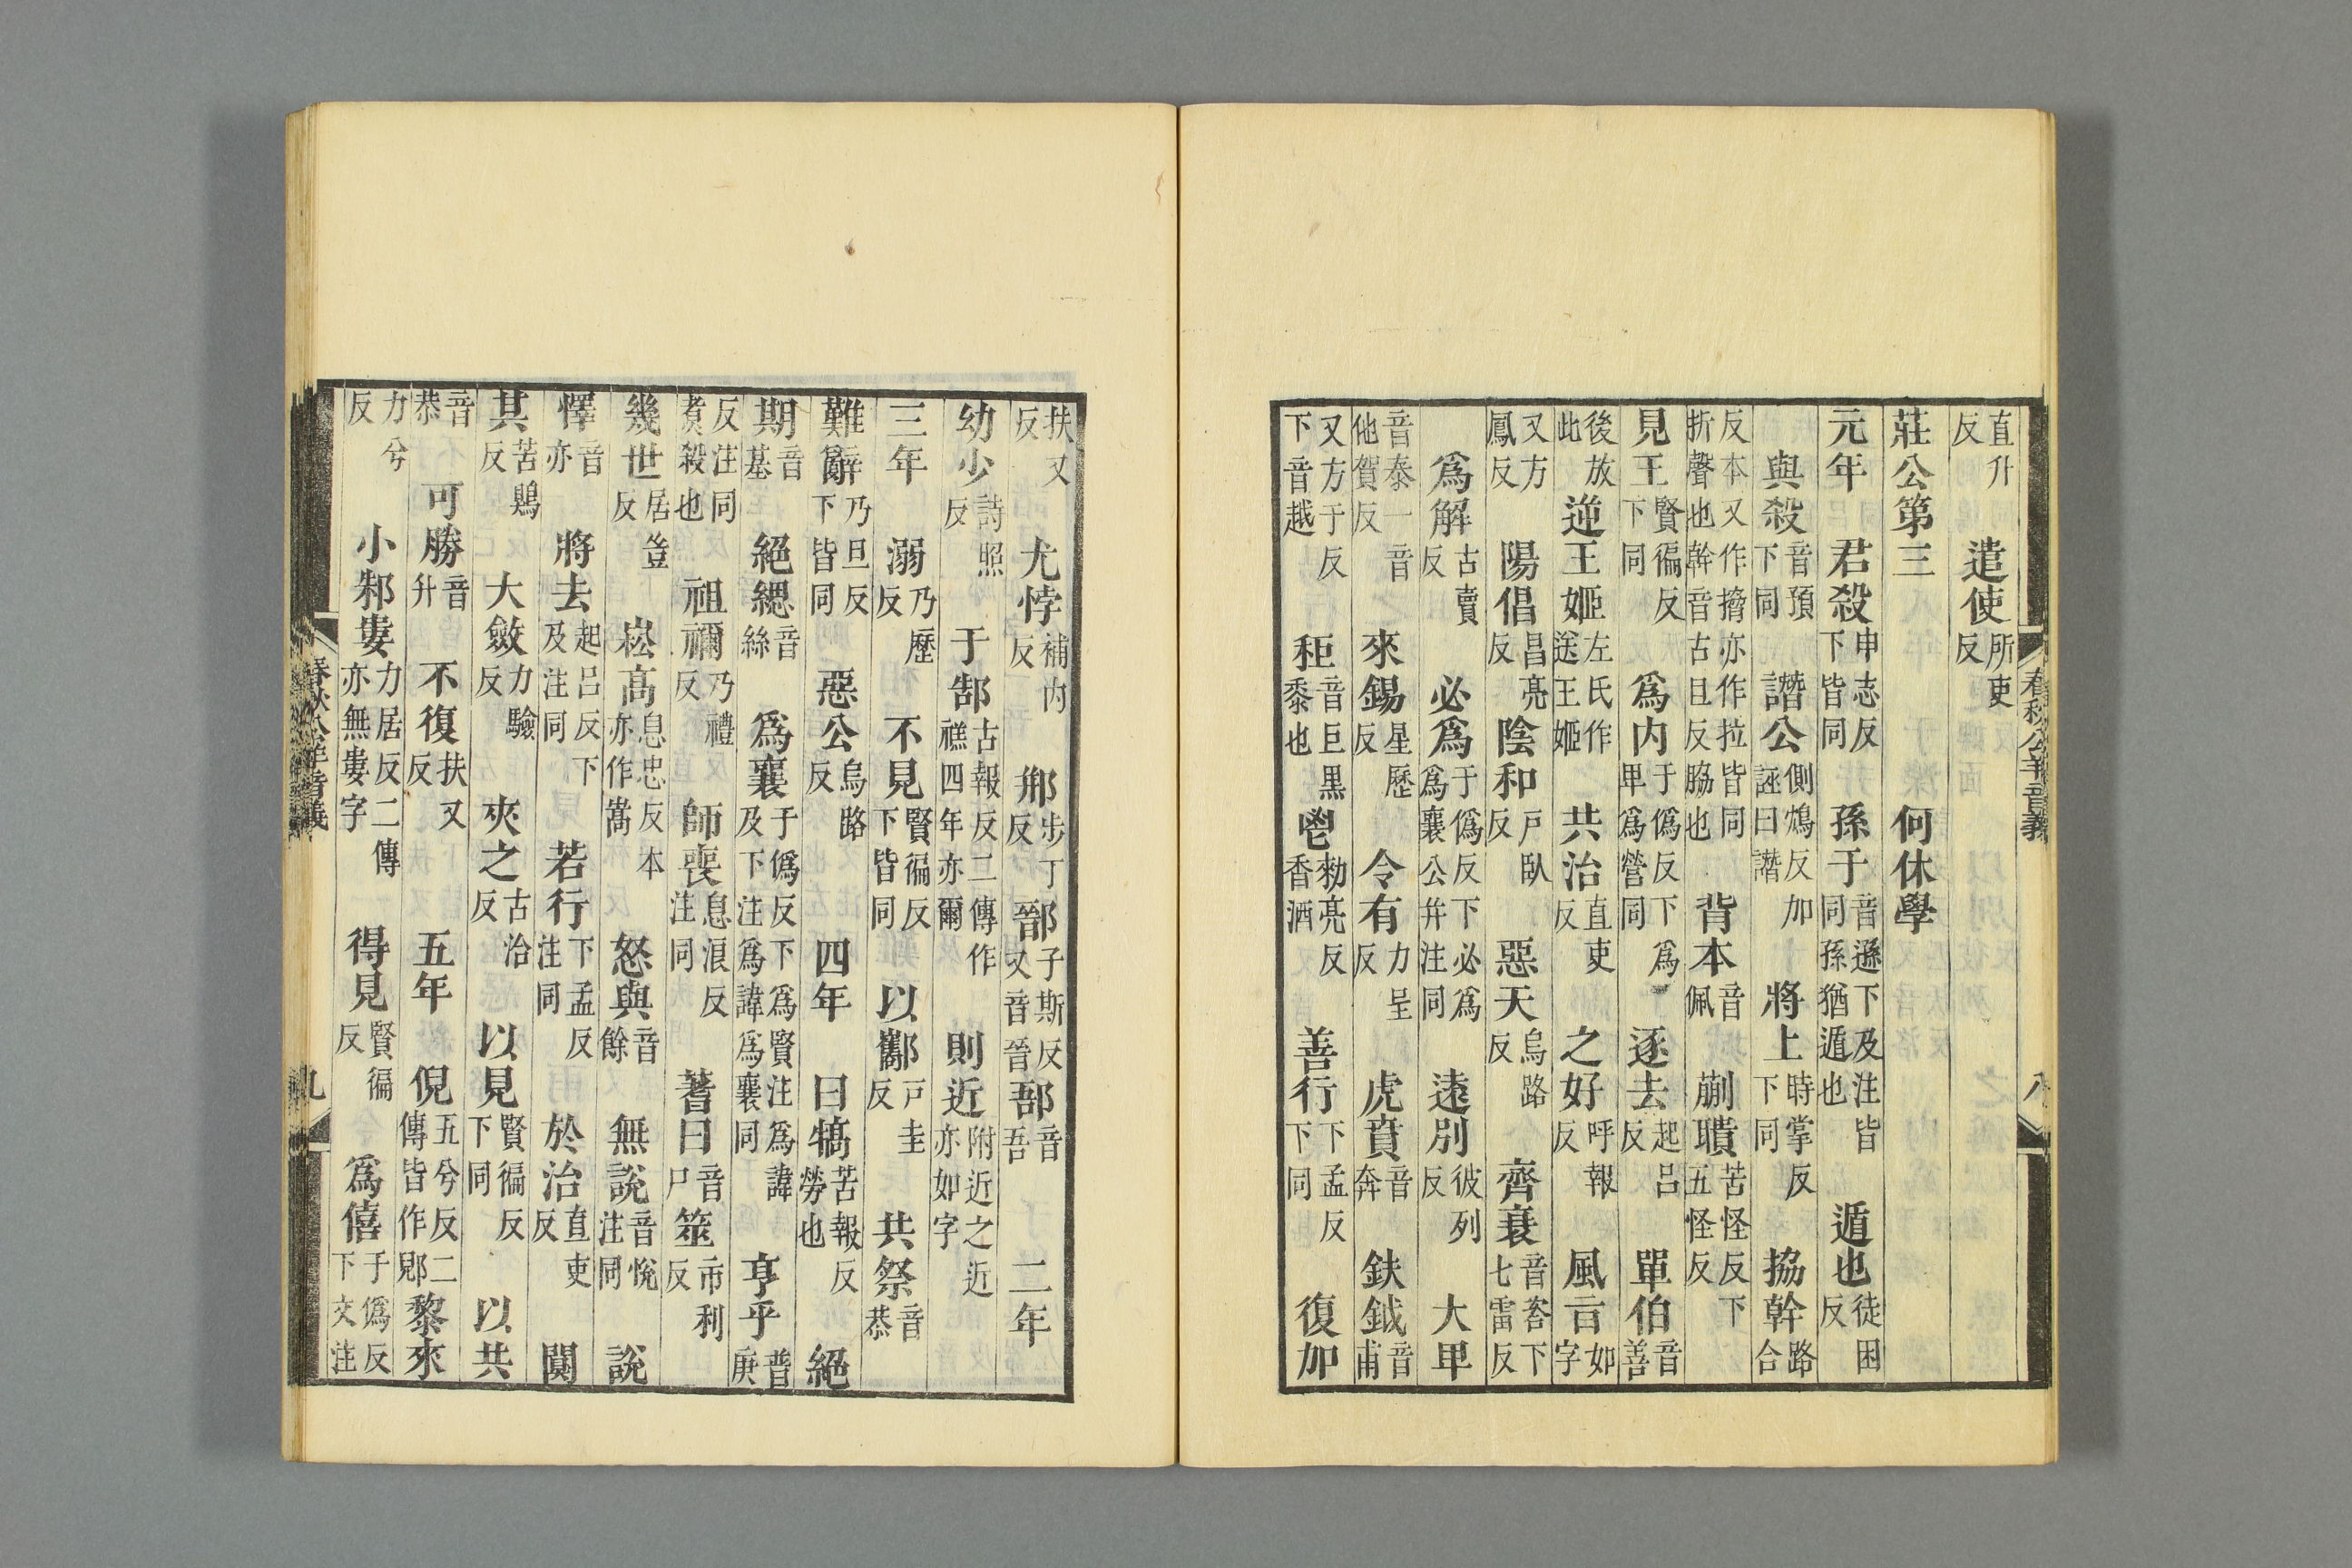 春秋公羊音義 八
直升反 遣使所吏反
莊公第三 何休學
元年 君殺申志反下皆同 孫于音遜下及注皆同孫猶遁也 遁也徒困反
與殺音預下同 譖公側鴆反加誣曰譖 將上時掌反下同 協幹路合
反本又作擠亦作拉皆同折聲也幹音古旦反脇也 背本音佩 蒯聵苦怪反下五怪反
見王賢徧反下同 爲内于僞反下爲卑爲營同 逐去起呂反 單伯音善
後放此 逆王姬左氏作送王姬 共治直吏反 之好呼報反 風言如字
又方鳳反 陽倡昌亮反 陰和戸臥反 惡天烏路反 齊衰音咨下七雷反
爲解古賣反 必爲于僞反下必爲爲襄公幷注同 遠別彼列反 大甲
音泰一音他賀反 來錫星歷反 令有力呈反 虎賁音奔 鈇鉞音甫
又方于反下音越 秬音巨黑黍也 鬯勑亮反香酒 善行下孟反下同 復加
扶又反 尤悖補内反 郱步丁反 鄑子斯反又音晉 郚音吾 二年
幼少詩照反 于郜古報反二傳作禚四年亦爾 則近附近之近亦如字
三年 溺乃歷反 不見賢徧反下皆同 以酅戸圭反 共祭音恭
難辭乃旦反下皆同 惡公烏路反 四年 曰犒苦報反勞也 絕
期音基 絕緦音絲 爲襄于僞反下爲賢注爲諱及下注爲諱爲襄同 亨乎普庚
反注同煮殺也 祖禰乃禮反 師喪息浪反注同 蓍曰音尸 筮市利反
幾世居豈反 崧高息忠反本亦作嵩 怒與音餘 無說音悅注同 說
懌音亦 將去起呂反下及注同 若行下孟反注同 於治直吏反 闃
其苦鶪反 大斂力驗反 夾之古洽反 以見賢徧反下同 以共
音恭 可勝音升 不復扶又反 五年 倪五兮反二傳皆作郳 黎來
力兮反 小邾婁力居反二傳亦無婁字 得見賢徧反 爲僖于僞反下文注
春秋公羊音義 九